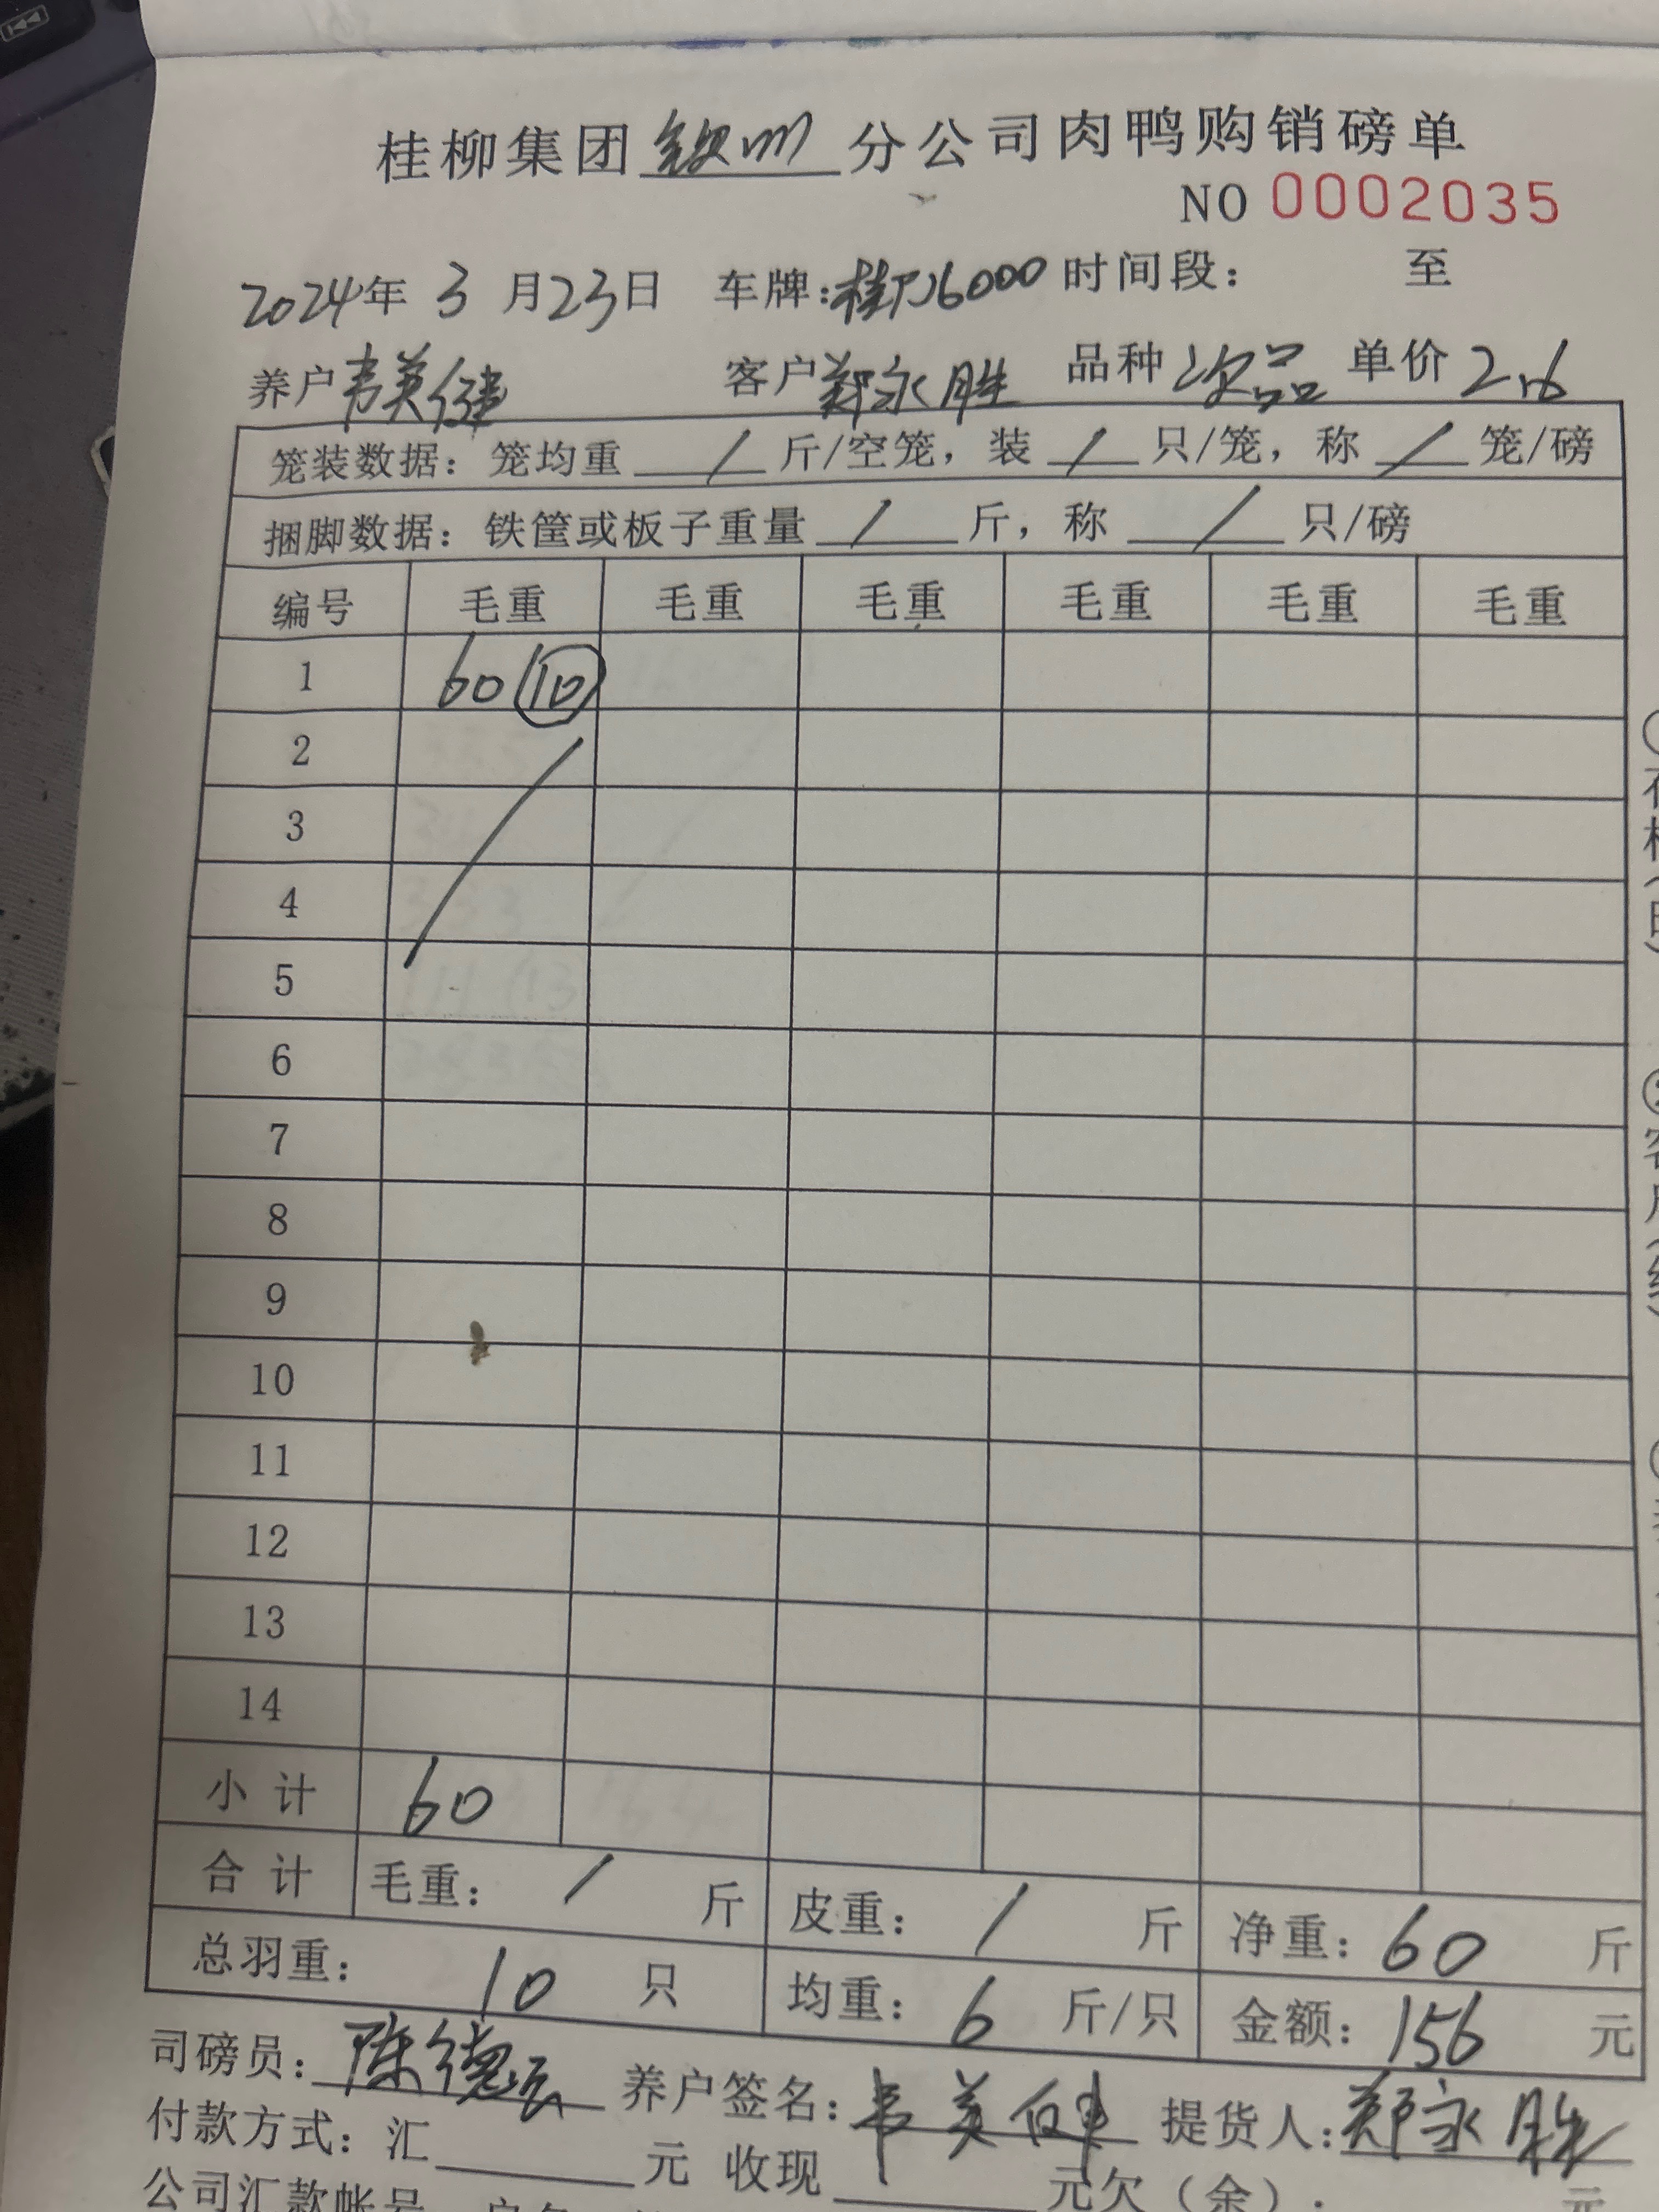 桂柳集团钦州分公司肉鸭购销磅单
NO 0002035
2024年 3 月23日 车牌:桂 6000 时间段: 至
养户韦英健 客户郑永胜 品种次品 单价2.6
笼装数据: 笼均重 / 斤/空笼, 装 / 只/笼, 称 / 笼/磅
捆脚数据: 铁筐或板子重量 / 斤, 称 / 只/磅
编号 毛重 毛重 毛重 毛重 毛重 毛重
1 60 10
2
3
4
5
6
7
8
9
10
11
12
13
14
小 计 60
合 计 毛重: / 斤 皮重: / 斤 净重: 60 斤
总羽重: 10 只 均重: 6 斤/只 金额: 156 元
司磅员: 陈德 养户签名: 韦英健 提货人: 郑永胜
付款方式: 汇 元 收现 元欠(余): 元
公司汇款帐号